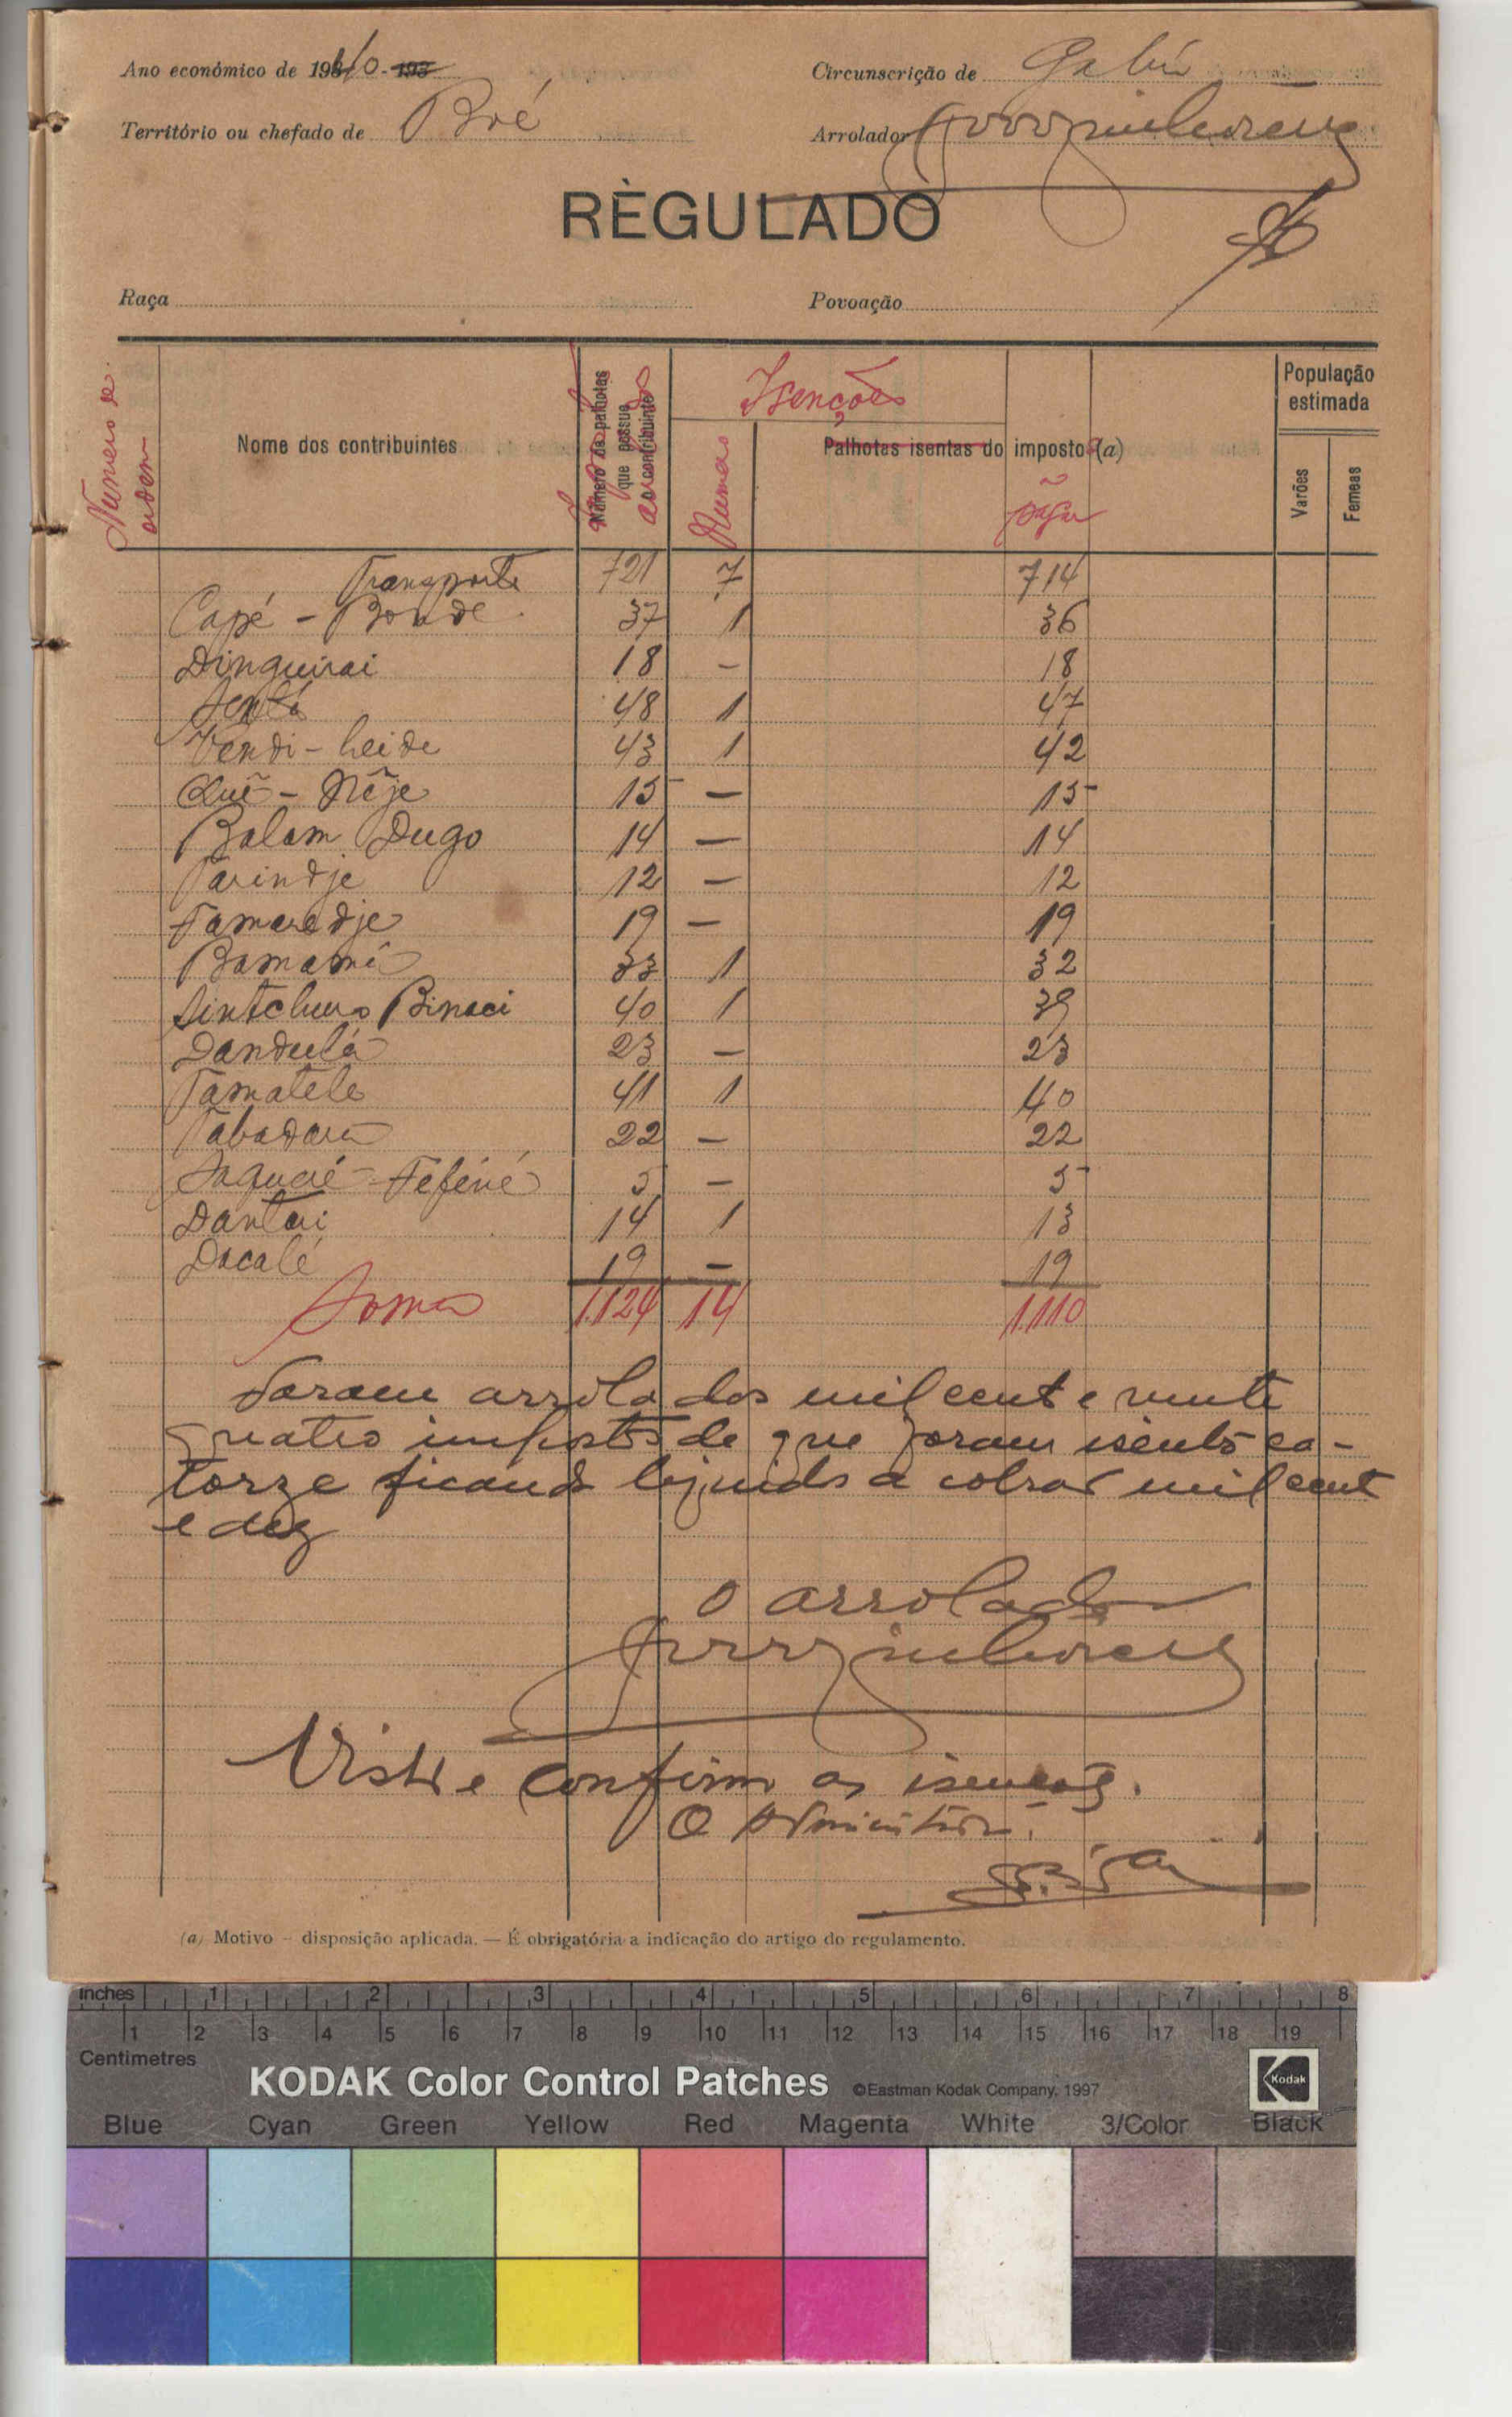 Ano económico de 1940 - 193
Circunscrição de Gabú
Território ou chefado de Boé
Arrolador
RÈGULADO
Raça
Povoação
Numero de ordem
Nome dos contribuintes
Número de palhotas que possue o contribuinte
Isenções
Numero
Palhotas isentas do imposto (a)
População estimada
Varões
Femeas
Transporte 721 7 714
Capé - Bonde 37 1 36
Dinguirai 18 - 18
48 1 47
Vendi - Leide 43 1 42
Quê - Nêje 15 - 15
Balam Dugo 14 - 14
Parindje 12 - 12
Tamaredje 19 - 19
Bamami 33 1 32
Sintchuro Binaci 40 1 39
Dandulá 23 - 23
Tamatele 41 1 40
Tabadara 22 - 22
Saquaié - Fefiné 5 - 5
Dantari 14 1 13
Dacalé 19 - 19
Soma 1.124 14 1.110
Foram arrolados mil cento e vinte
quatro impostos de que foram isentos ca-
torze ficando liquidos a cobrar mil cento
e dez
O arrolador
Visto e confirmo as isenções.
O Administrador
(a) Motivo - disposição aplicada. — É obrigatória a indicação do artigo do regulamento.
Inches 1 2 3 4 5 6 7 8
1 2 3 4 5 6 7 8 9 10 11 12 13 14 15 16 17 18 19
Centimetres
KODAK Color Control Patches ©Eastman Kodak Company, 1997 Kodak
Blue Cyan Green Yellow Red Magenta White 3/Color Black